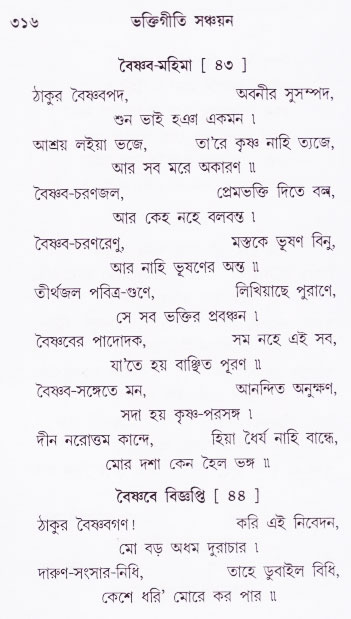 ৩১৬ ভক্তিগীতি সঞ্চয়ন
বৈষ্ণব-মহিমা [ ৪৩ ]
ঠাকুর বৈষ্ণবপদ, অবনীর সুসম্পদ,
শুন ভাই হঞা একমন ৷
আশ্রয় লইয়া ভজে, তা'রে কৃষ্ণ নাহি ত্যজে,
আর সব মরে অকারণ ৷৷
বৈষ্ণব-চরণজল, প্রেমভক্তি দিতে বল,
আর কেহ নহে বলবন্ত ৷
বৈষ্ণব-চরণরেণু, মস্তকে ভূষণ বিনু,
আর নাহি ভূষণের অন্ত ৷৷
তীর্থজল পবিত্র-গুণে, লিখিয়াছে পুরাণে,
সে সব ভক্তির প্রবঞ্চন ৷
বৈষ্ণবের পাদোদক, সম নহে এই সব,
যা'তে হয় বাঞ্ছিত পূরণ ৷৷
বৈষ্ণব-সঙ্গেতে মন, আনন্দিত অনুক্ষণ,
সদা হয় কৃষ্ণ-পরসঙ্গ ৷
দীন নরোত্তম কান্দে, হিয়া ধৈর্য নাহি বান্ধে,
মোর দশা কেন হৈল ভঙ্গ ৷৷
বৈষ্ণবে বিজ্ঞপ্তি [ ৪৪ ]
ঠাকুর বৈষ্ণবগণ! করি এই নিবেদন,
মো বড় অধম দুরাচার ৷
দারুণ-সংসার-নিধি, তাহে ডুবাইল বিধি,
কেশে ধরি' মোরে কর পার ৷৷